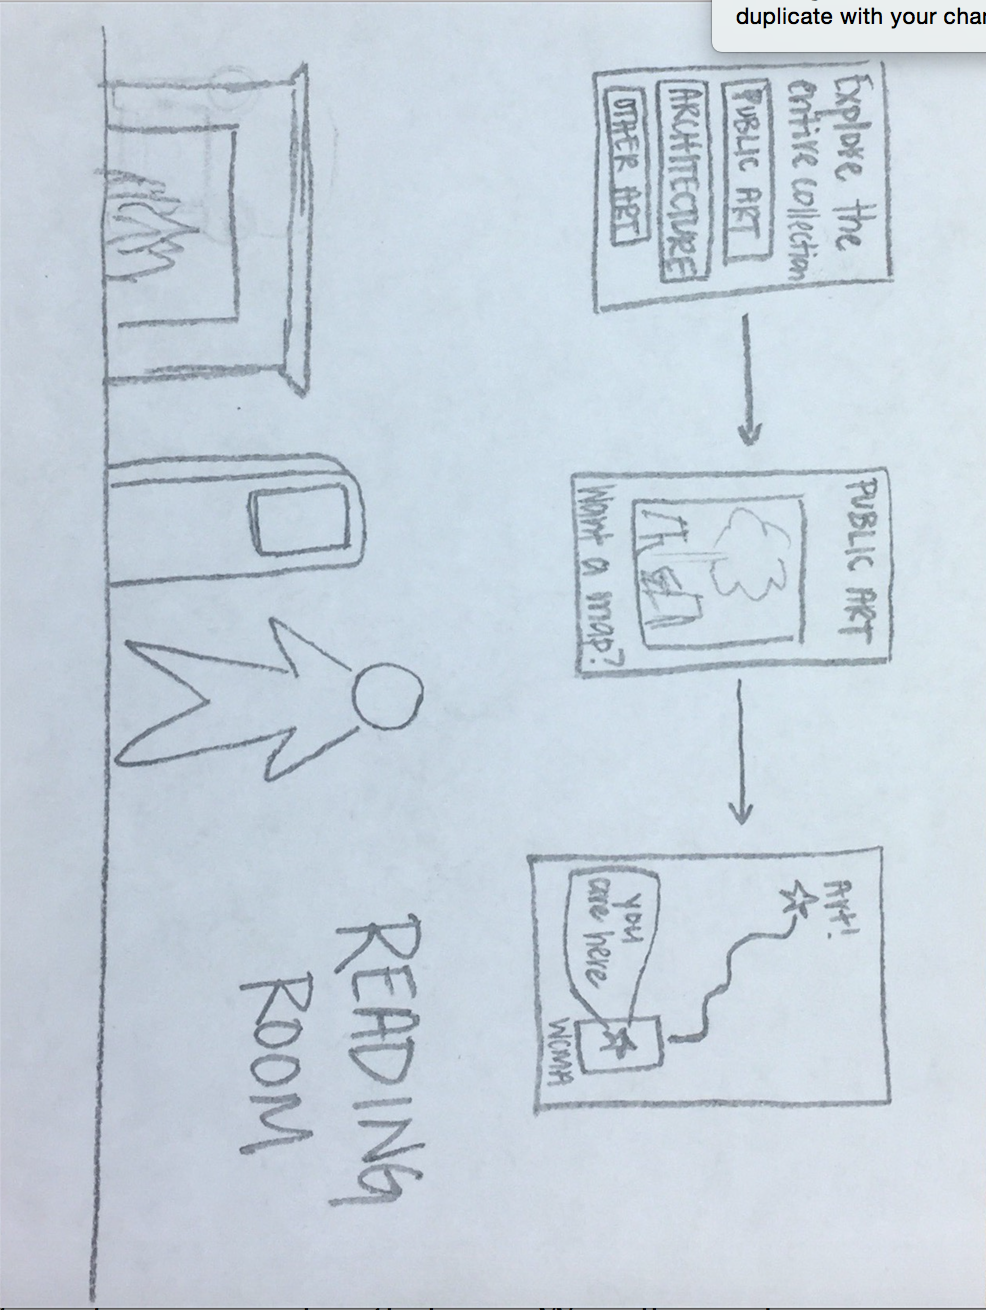 duplicate with your char
Explore the
entire collection
PUBLIC ART
ARCHITECTURE
OTHER ART
PUBLIC ART
Want a map?
Art!
you
are here
WCMA
READING
ROOM